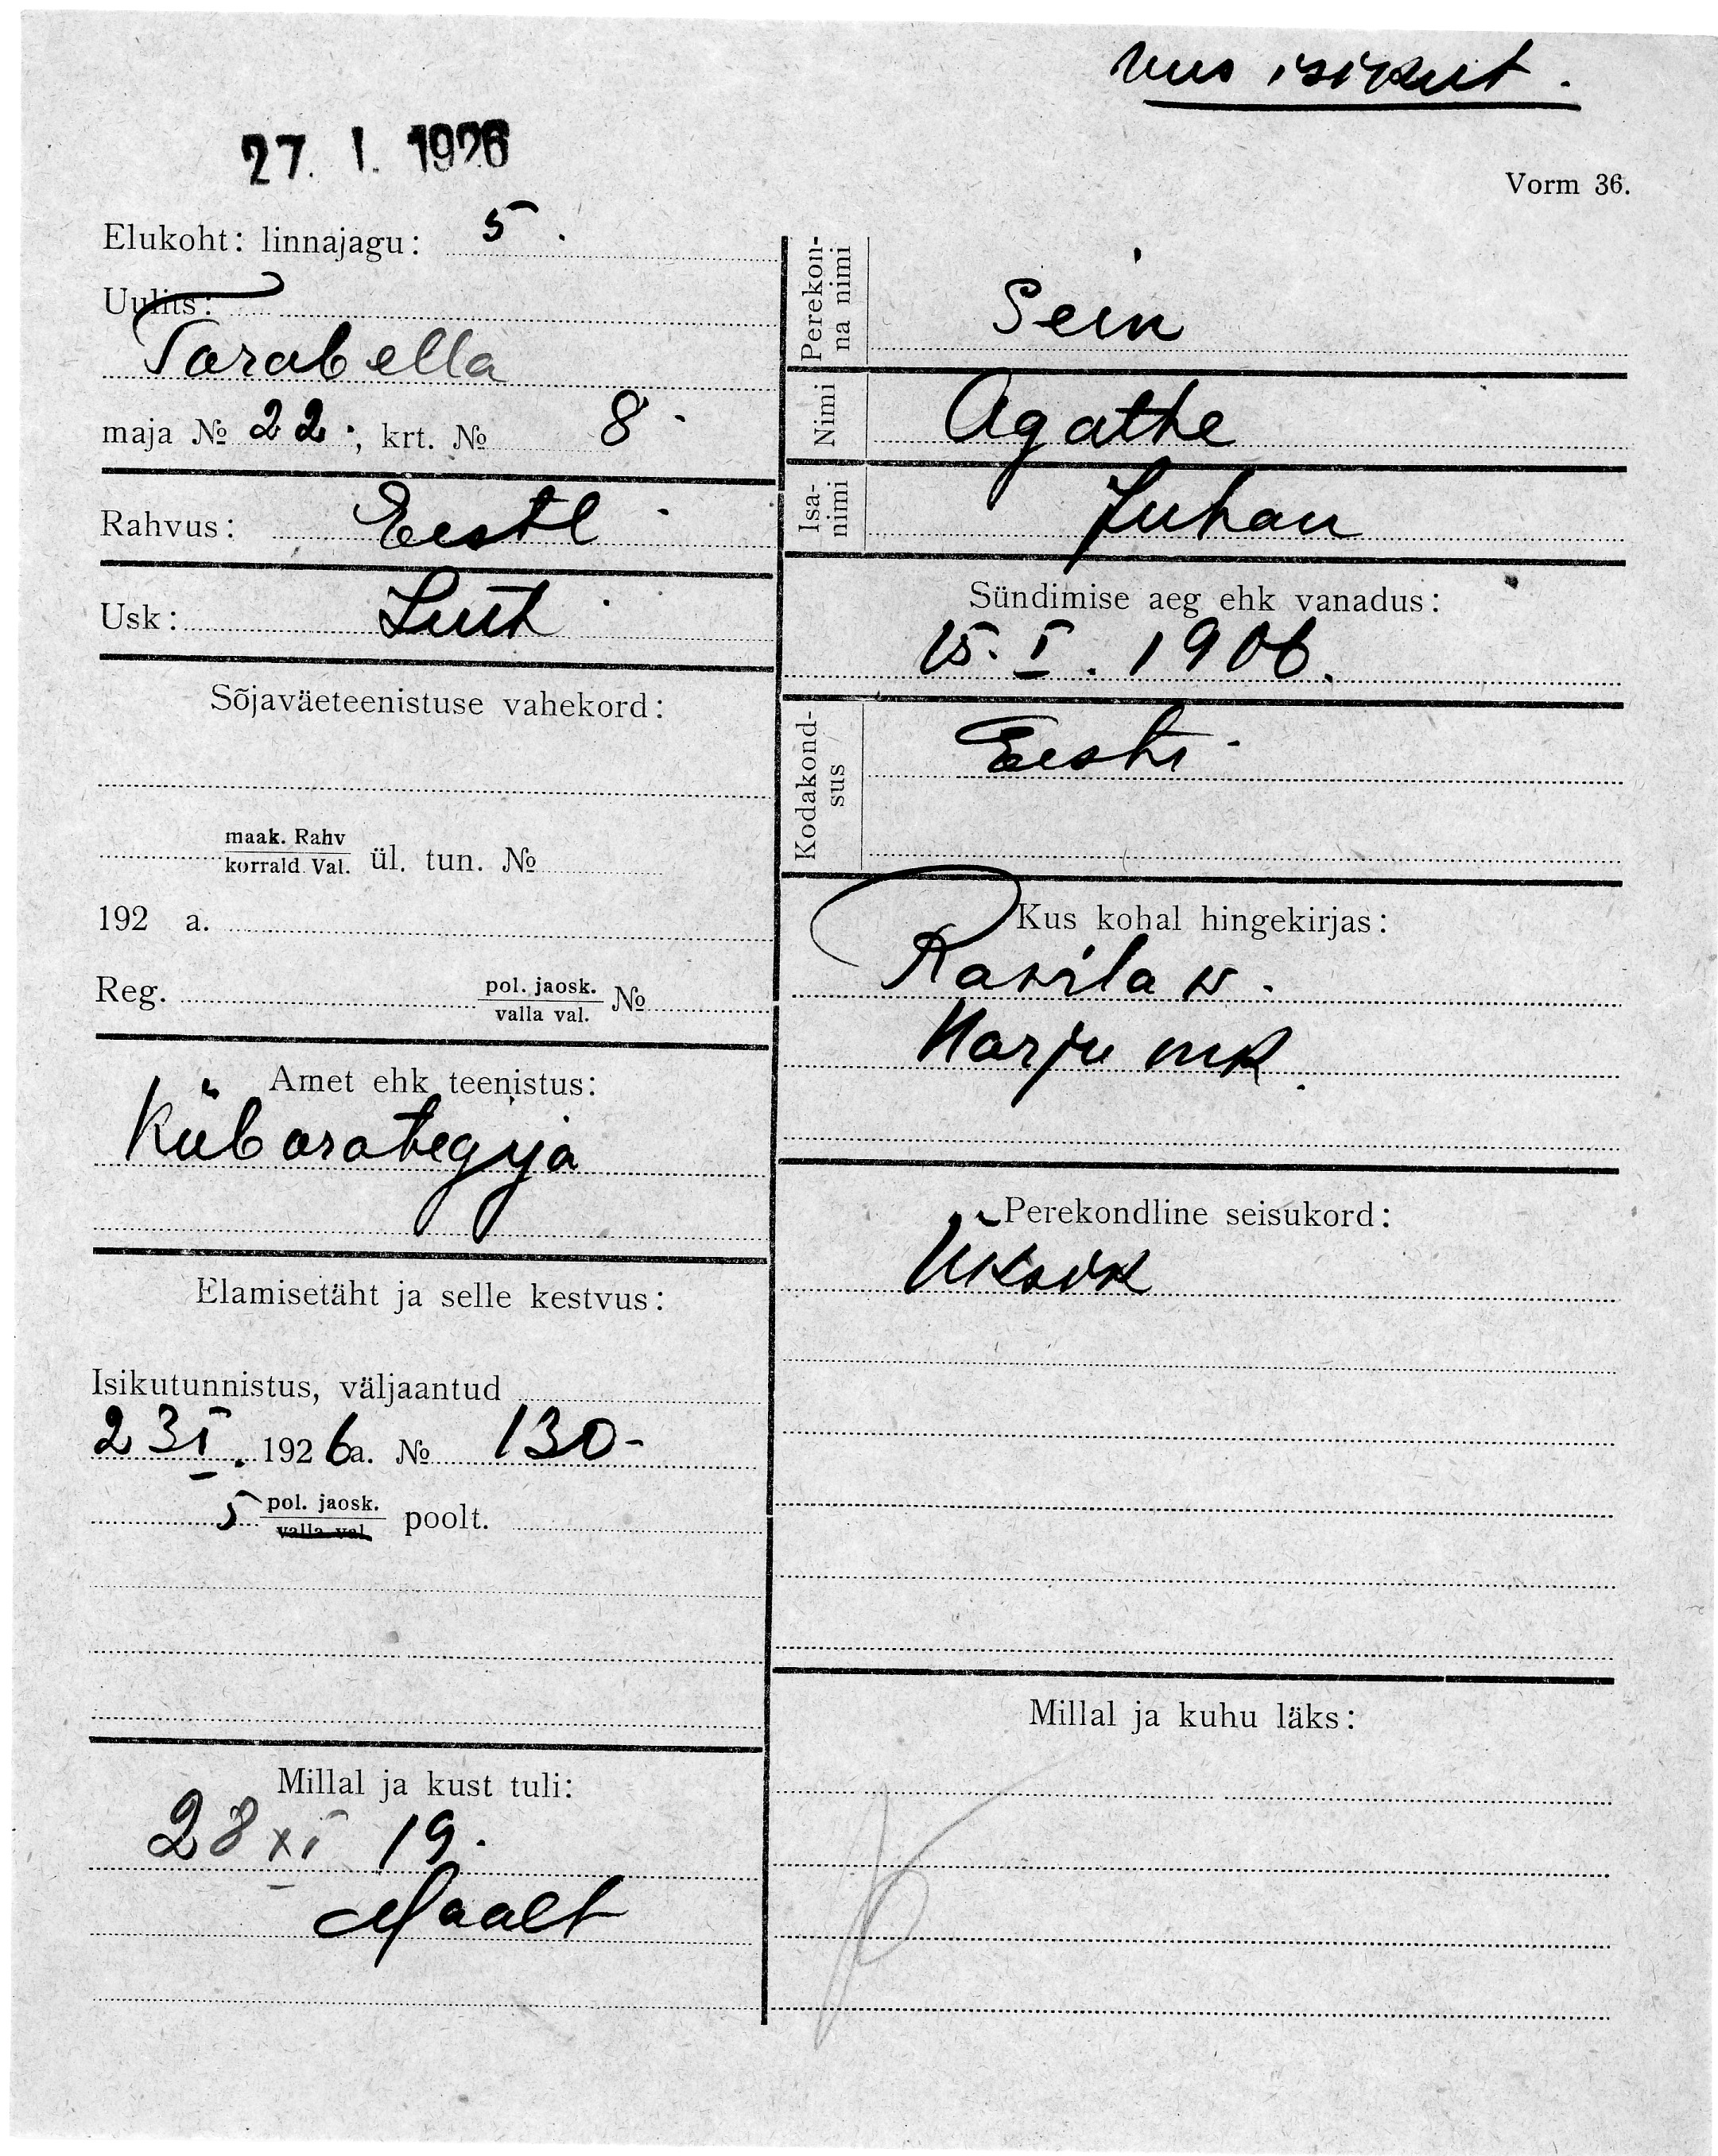 uus isikut.
27. I. 1926
Vorm 36.
Elukoht: linnajagu: 5.
Uulits:
Tarabella
maja № 22.; krt. № 8.
Rahvus: Eesti
Usk: Luth
Sõjaväeteenistuse vahekord:
maak. Rahv
korrald. Val. ül. tun. №
192 a.
Reg. pol. jaosk.
valla val. №
Amet ehk teenistus:
Kübarategija
Elamisetäht ja selle kestvus:
Isikutunnistus, väljaantud
23 I. 1926 a. № 130-
5 pol. jaosk.
valla val. poolt.
Millal ja kust tuli:
28 XI 19.
Maalt
Perekon-
na nimi
Sein
Nimi
Agathe
Isa-
nimi
Juhan
Sündimise aeg ehk vanadus:
15. I. 1906.
Kodakond-
sus
Eesti
Kus kohal hingekirjas:
Rawila w.
Harju mk.
Perekondline seisukord:
Üksik
Millal ja kuhu läks: